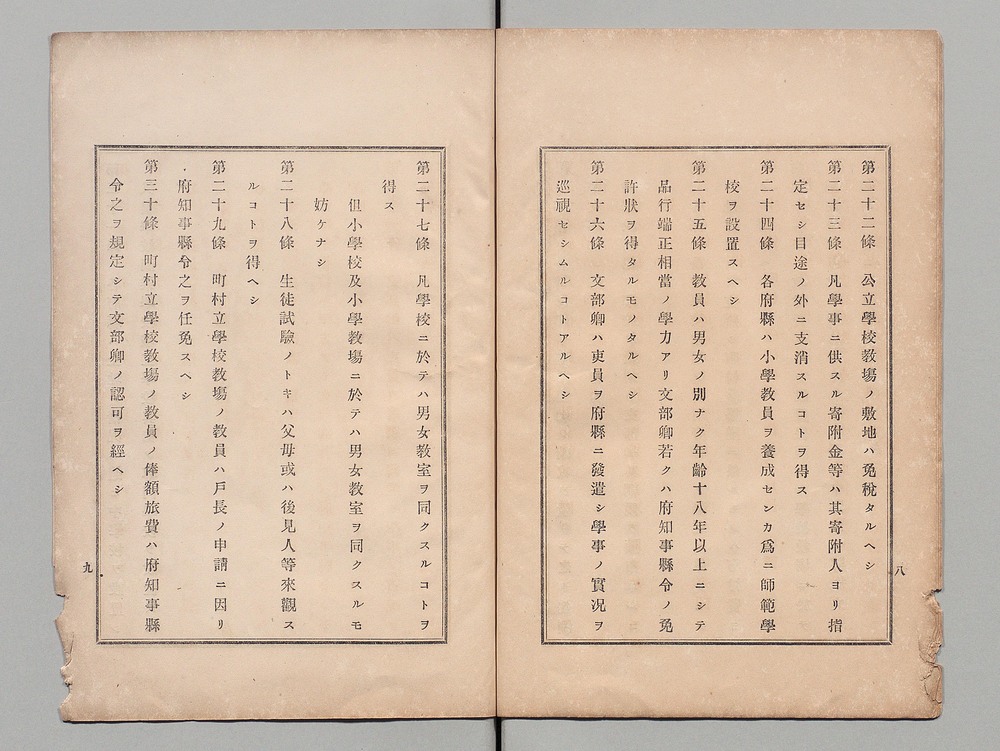 第二十二條　公立學校教塲ノ敷地ハ免稅タルヘシ
第二十三條　凡學事ニ供スル寄附金等ハ其寄附人ヨリ指
定セシ目途ノ外ニ支消スルコトヲ得ス
第二十四條　各府縣ハ小學教員ヲ養成センカ爲ニ師範學
校ヲ設置スヘシ
第二十五條　教員ハ男女ノ別ナク年齡十八年以上ニシテ
品行端正相當ノ學力アリ文部卿若クハ府知事縣令ノ免
許狀ヲ得タルモノタルヘシ
第二十六條　文部卿ハ吏員ヲ府縣ニ發遣シ學事ノ實況ヲ
巡視セシムルコトアルヘシ
八
第二十七條　凡學校ニ於テハ男女教室ヲ同クスルコトヲ
得ス
但小學校及小學教塲ニ於テハ男女教室ヲ同クスルモ
妨ケナシ
第二十八條　生徒試驗ノトキハ父母或ハ後見人等來觀ス
ルコトヲ得ヘシ
第二十九條　町村立學校教塲ノ教員ハ戶長ノ申請ニ因リ
府知事縣令之ヲ任免スヘシ
第三十條　町村立學校教塲ノ教員ノ俸額旅費ハ府知事縣
令之ヲ規定シテ文部卿ノ認可ヲ經ヘシ
九